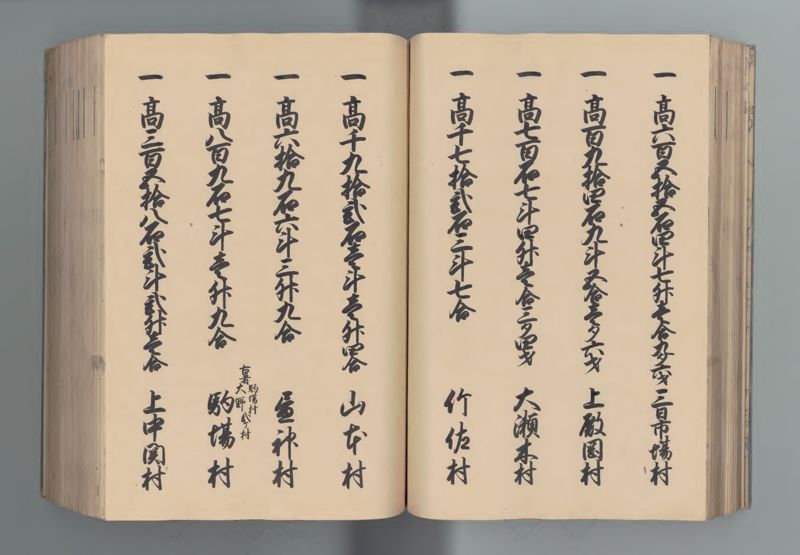 一 高六百五拾五石四斗七升壱合九夕六才 三日市場村
一 高百九拾四石九斗五合壱夕六才 上殿岡村
一 高七百石七斗四升壱合三夕四才 大瀬木村
一 高千七拾弐石三斗七合 竹佐村
一 高千九拾弐石壱斗壱升四合 山本村
一 高六拾九石六斗三升九合 昼神村
一 高八百九石七斗壱升九合 駒場村
古者 駒場村
大野 弐ケ村
一 高三百五拾八石弐斗弐升壱合 上中関村